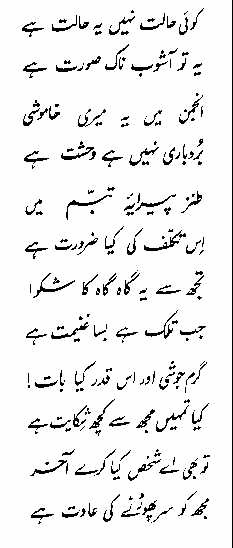 کوئی حالت نہیں یہ حالت ہے
یہ تو آشوب ناک صورت ہے
انجمن میں یہ میری خاموشی
بُردباری نہیں ہے وحشت ہے
طنز پیرایۂ تبسّم میں
اِس تکلّف کی کیا ضرورت ہے
تجھ سے یہ گاہ گاہ کا شکوا
جب تلک ہے بسا غنیمت ہے
گرم جوشی اور اس قدر کیا بات!
کیا تمہیں مجھ سے کچھ شکایت ہے
تو بھی اے شخص کیا کرے آخر
مجھ کو سر پھوڑنے کی عادت ہے